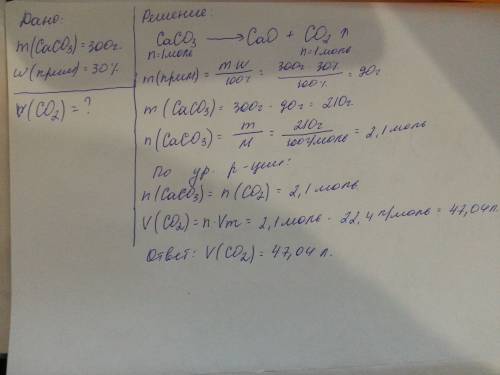 Дано:
m(CaCO₃)=300г
w(прим)=30%
V(CO₂)=?
Решение:
CaCO₃ → CaO + CO₂ ↑
n=1моль n=1моль
m(прим)= m·w/100% = 300г·30%/100% = 90г
m(CaCO₃)=300г-90г=210г
n(CaCO₃)= m/M = 210г/100г/моль = 2,1моль
По ур. р-ции:
n(CaCO₃)=n(CO₂)=2,1моль
V(CO₂)=n·Vm=2,1моль·22,4л/моль=47,04л.
Ответ: V(CO₂)=47,04л.